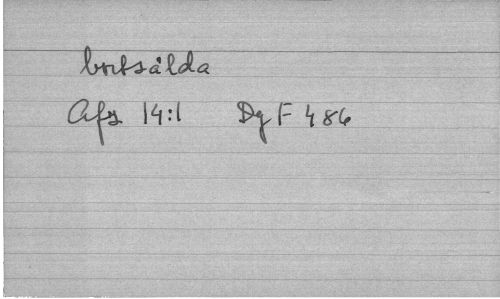 bortsålda
Afz 14:1 Dg F 486